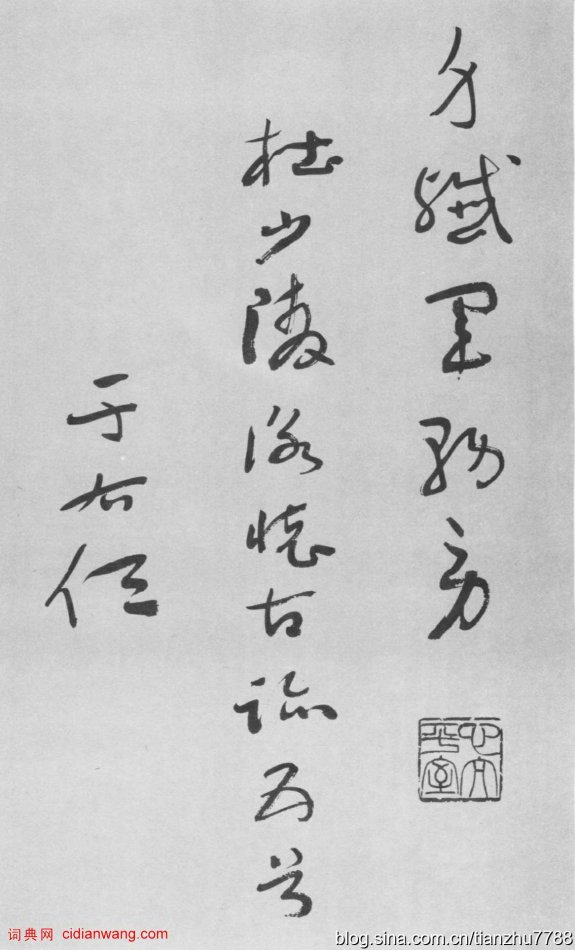 身殲軍務勞
心太平室
杜少陵詠懷古跡五首
于右任
词典网 cidianwang.com
blog.sina.com.cn/tianzhu7788